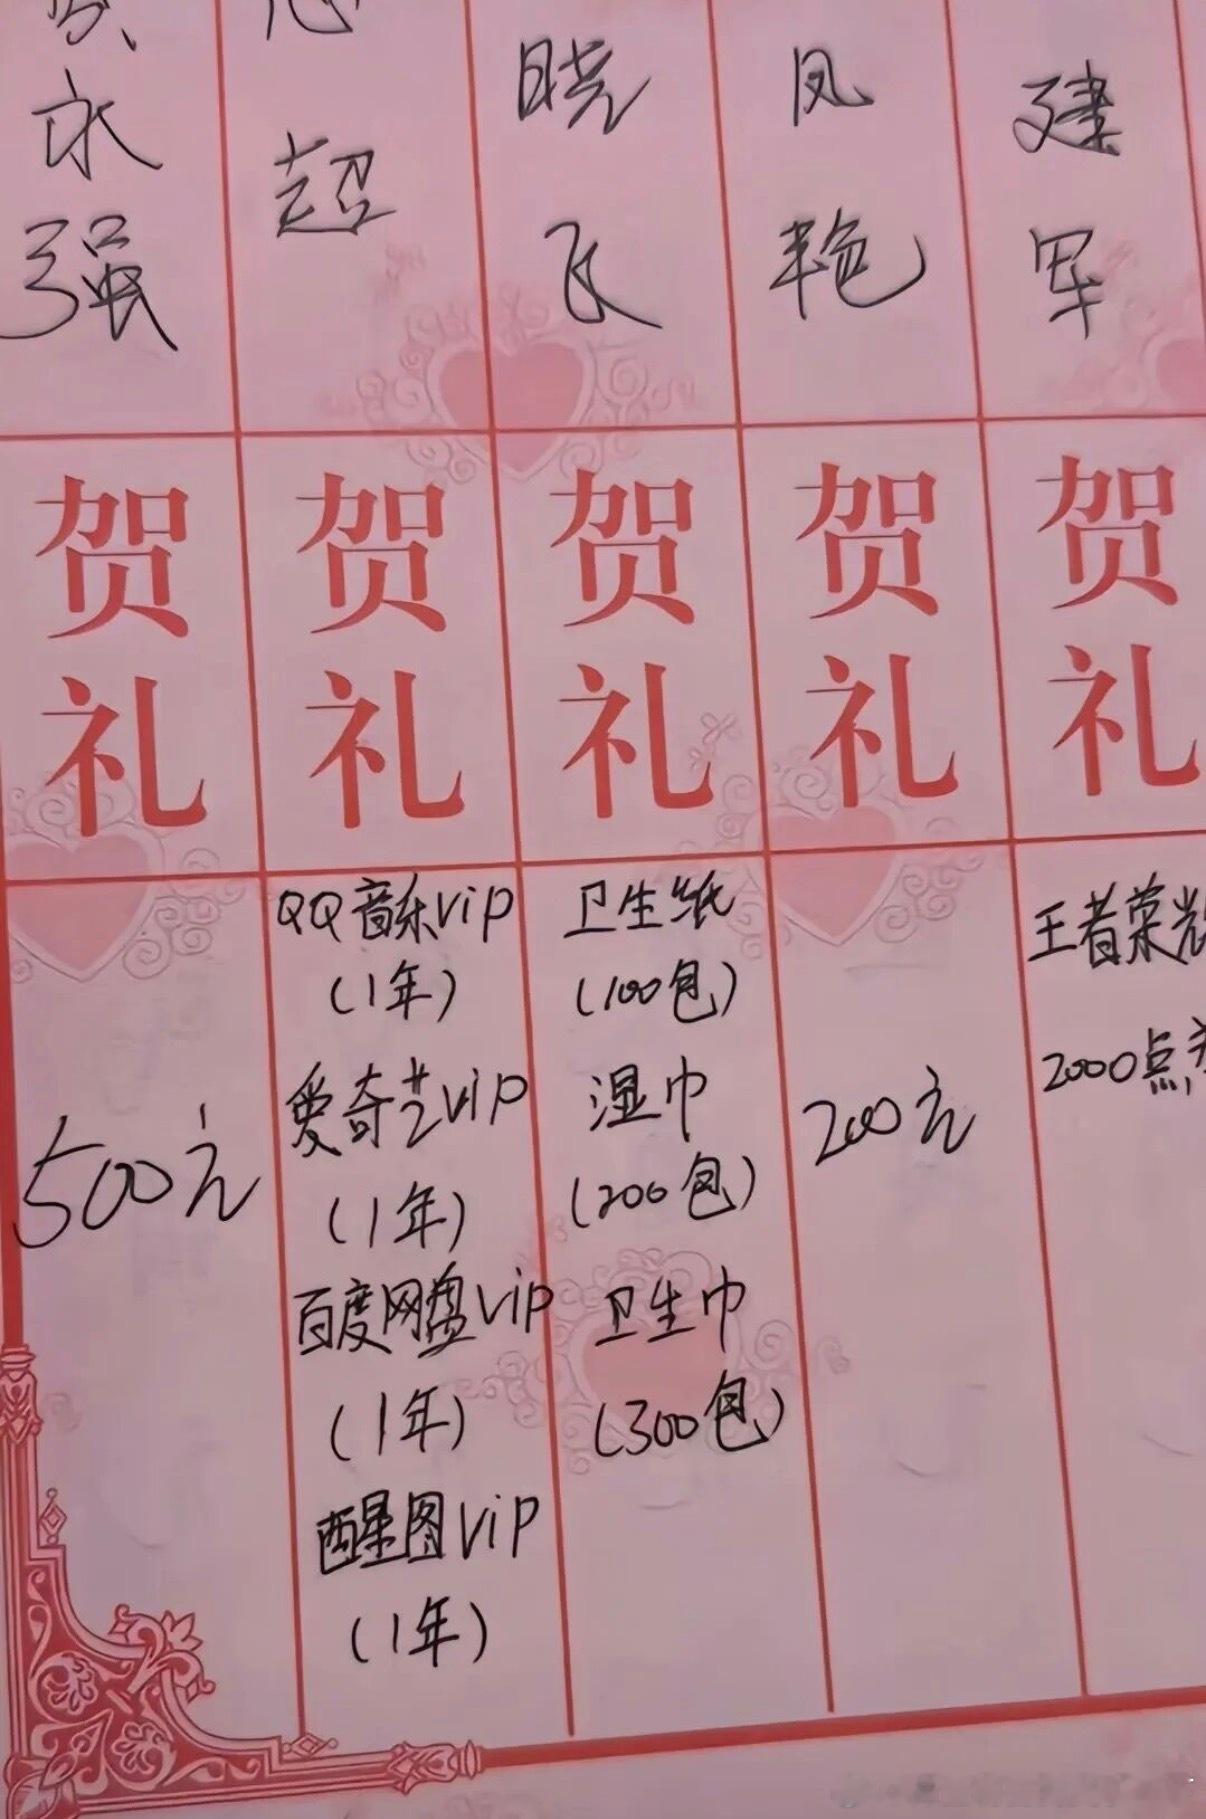 永强
超
晓飞
凤艳
建军
贺礼
贺礼
贺礼
贺礼
贺礼
500元
QQ音乐vip
(1年)
爱奇艺vip
(1年)
百度网盘vip
(1年)
醒图vip
(1年)
卫生纸
(100包)
湿巾
(200包)
卫生巾
(300包)
200元
王者荣耀
2000点